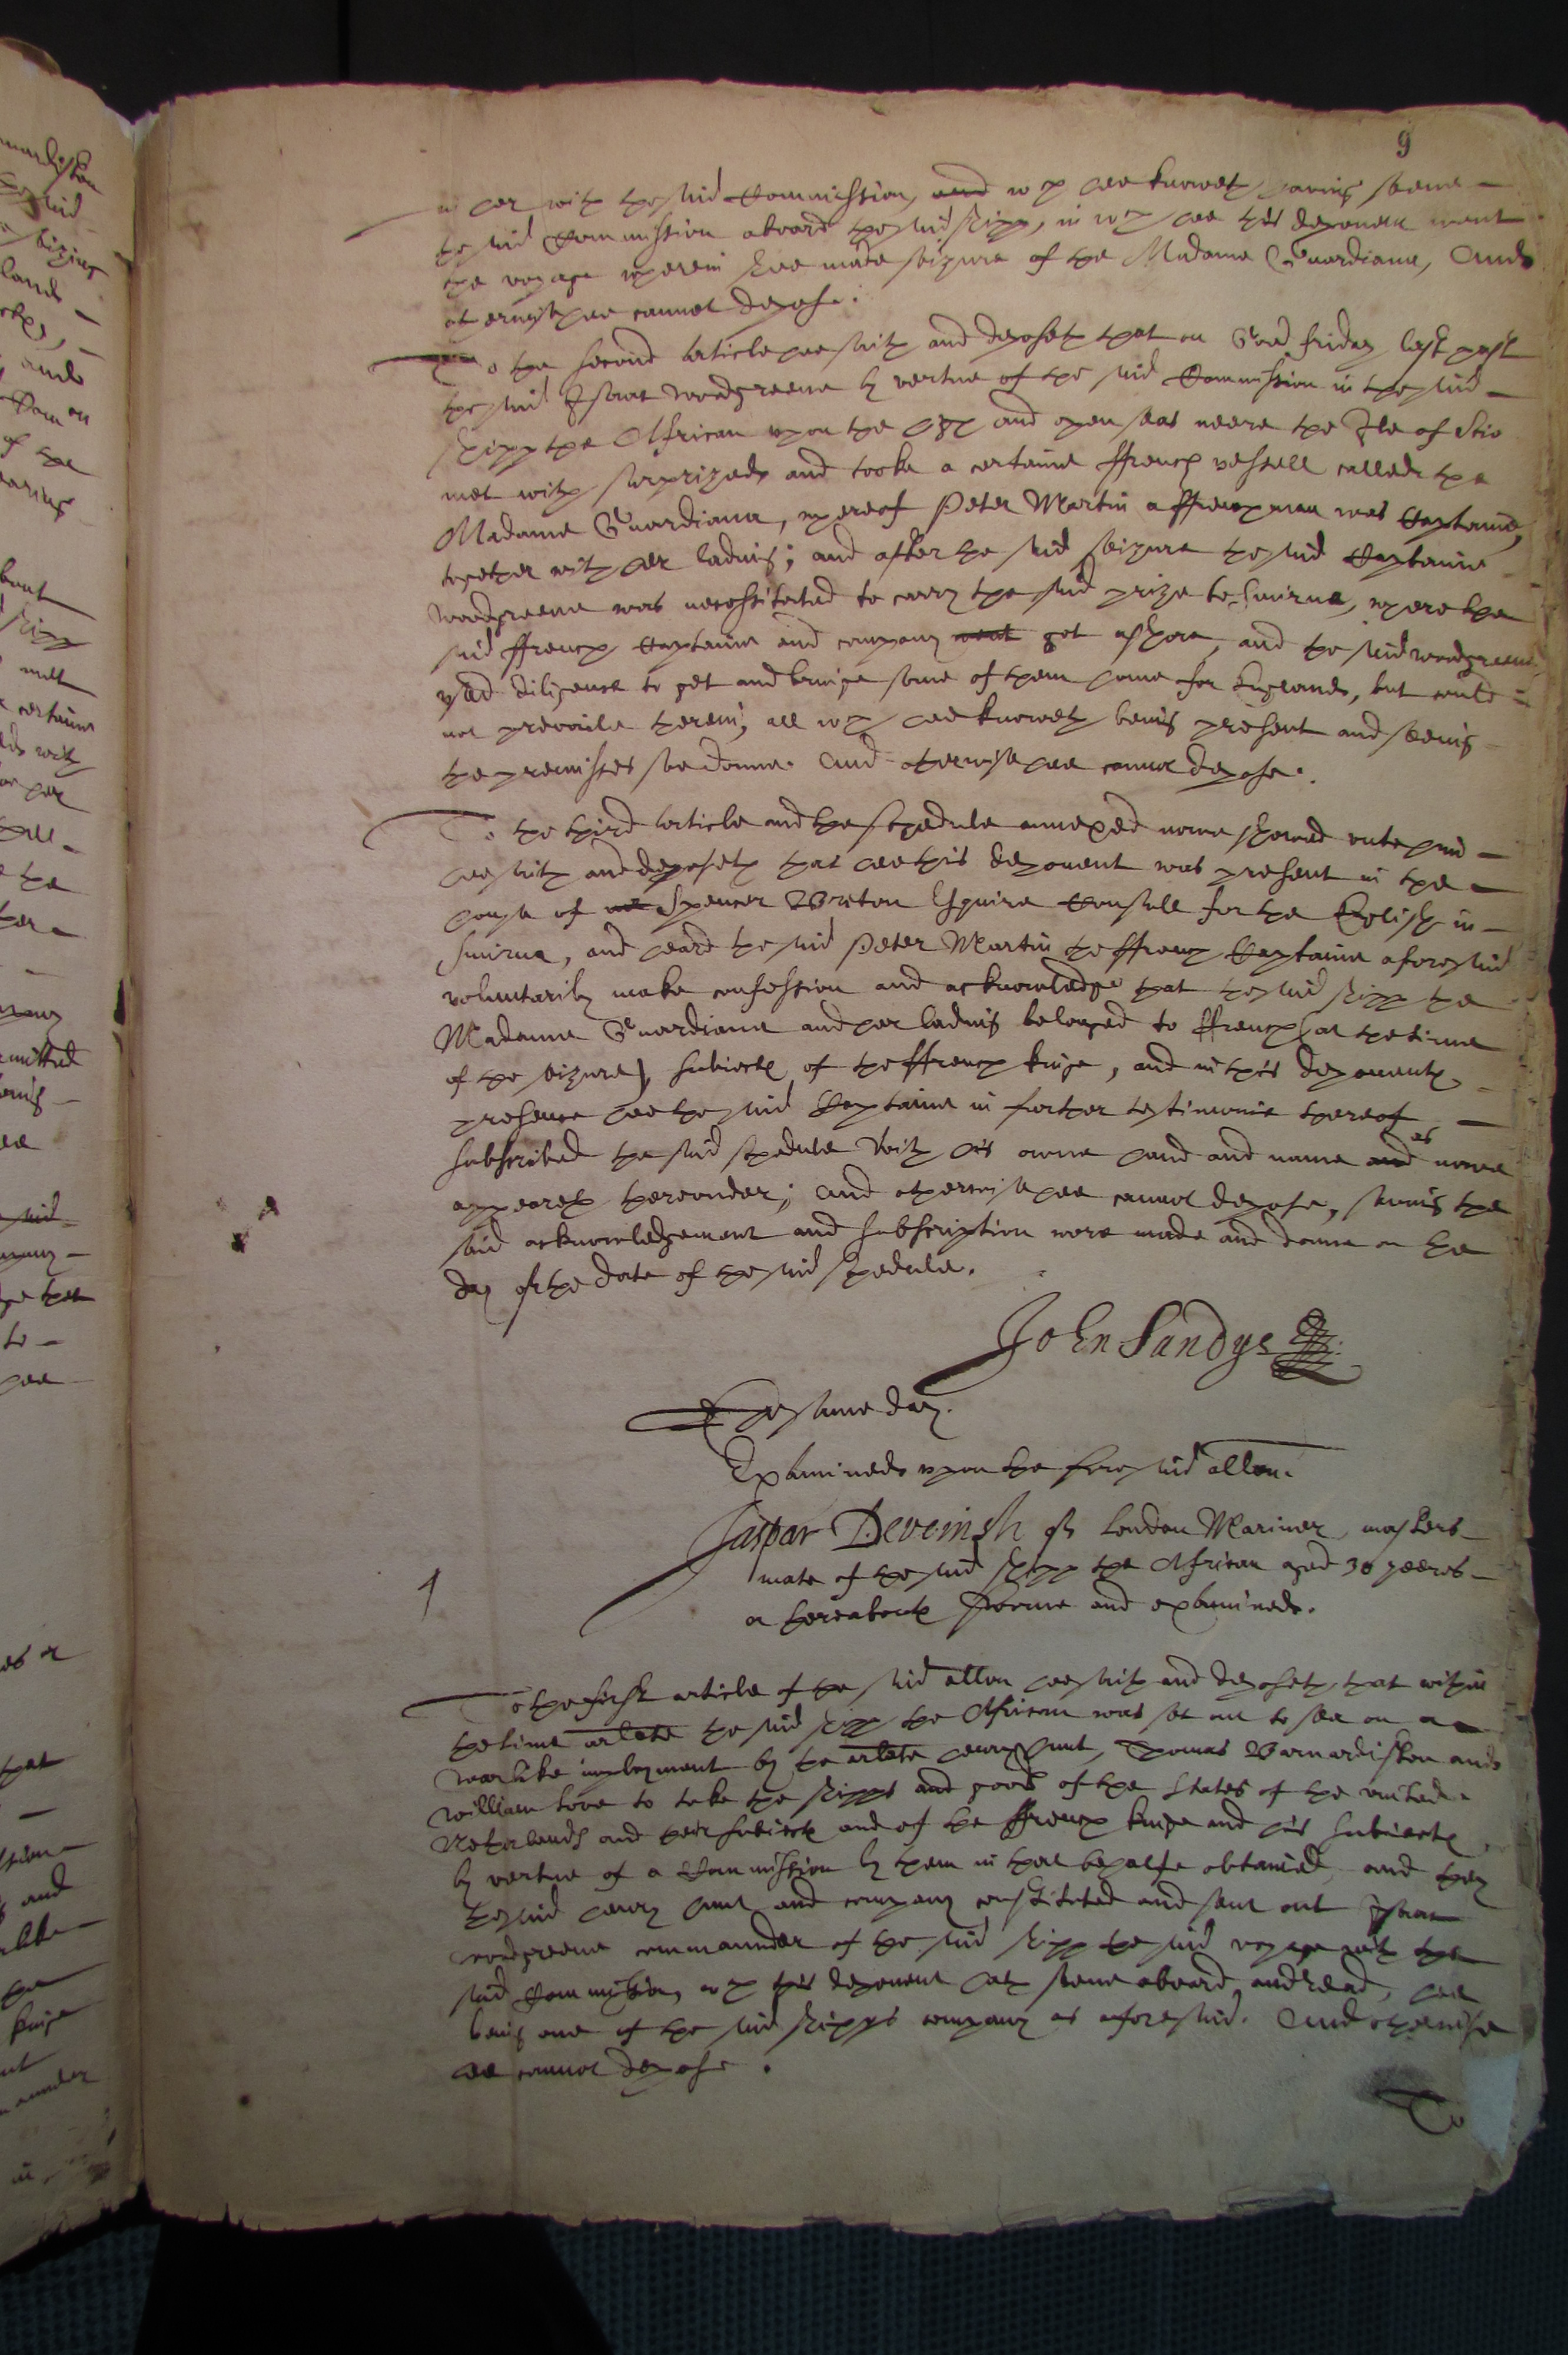 9
in her with the said Commission, and wch hee knoweth having seene
the said Commission aboard the said shipp, in wch hee this deponent went
the voyage wherein shee made seizure of the Madame Guardiana, And
otherwise hee cannot depose.
To the second article hee saith and deposeth that on Good friday last past
the said Isaac Woodgreene by vertue of the said Commission in the said
shipp the African upon the high and open seas neere the Ile of Scio
met with surprized and tooke a certaine ffrench vessell called the
Madame Guardiana, whereof Peter Martin a ffrenchman was Captaine,
together with her ladeing; and after the said seizure the said Captaine
Woodgreene was necessitated to carry the said prize to Smirna, where the
said ffrench Captaine and company went got ashore, and the said Woodgreene
used diligence to get and bringe some of them home for England, but could
not prevaile therein, all wch hee knoweth being present and seeing
the premisses soe donne. And otherwise hee cannot depose.
To the third article and the schedule annexed nowe shewed unto him
hee saith and deposeth that hee this deponent was present in the
house of Spencer Breton Esquire Consull for the English in
Smirna, and heard the said Peter Martin the ffrench Captaine aforesaid
voluntarily make confession and acknowledge that the said shipp the
Madame Guardiana and her ladeing belonged to ffrench (at the time
of the seizure) subiects of the ffrench kinge, and in this deponents
presence hee the said Captaine in further testimonie thereof
subscribed the said schedule with his owne hand and name and as nowe
appeareth thereunder; and otherwise hee cannot depose, saving the
said acknowledgement and subscription were made and donne on the
day of the date of the said schedule.
John Sandys
The same day.
Examined upon the foresaid allon.
Jaspar Deveinsh of London Mariner, masters
mate of the said shipp the African aged 30 yeeres
or thereabouts sworne and examined.
1
To the first article of the said allon hee saith and deposeth, that within
the time arlate the said shipp the African was set out to sea on a
warlike imployment by the arlate henry hunt, Thomas Barnardiston and
William Love to take the shipps and goods of the States of the united
Netherlands and their subiects and of the ffrench kinge and his subiects
by vertue of a Commission by them in that behalfe obtained, and they
the said henry hunt and company constituted and sent out Isaac
Woodgreene commaunder of the said shipp the said voyage with the
said Commission, wch this deponent hath seene aboard and read, hee
being one of the said shipps company as aforesaid. And otherwise
hee cannot depose.
To